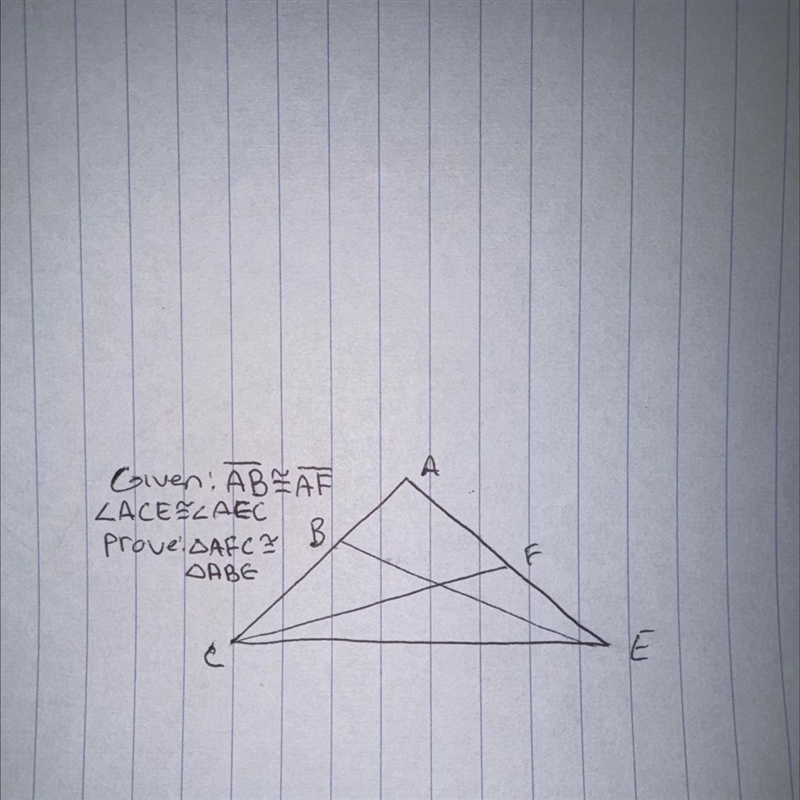 Given: AB≅AF
∠ACE≅∠AEC
Prove: △AFC≅
△ABE
A
B
F
C
E